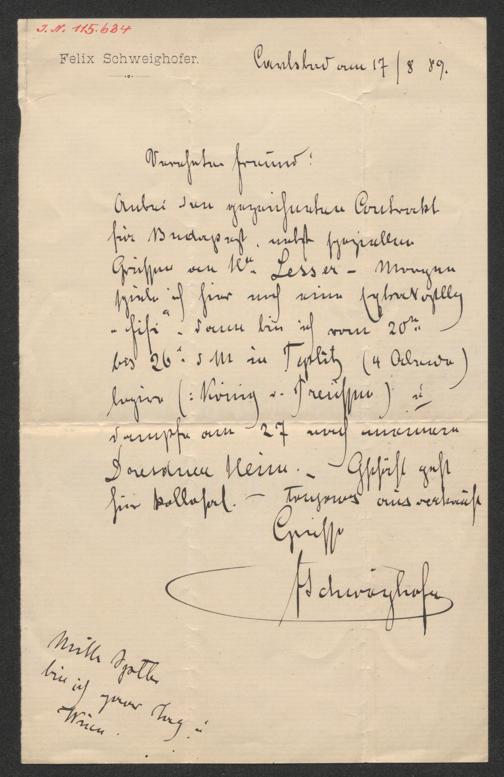 J.N. 115.684
Felix Schweighofer.
Carlsbad am 17/8 89.
Verehrter Freund!
Anbei den gezeichneten Contrakt
für Budapest, nebst speziellen
Grüßen an Hn. Lesser – Morgen
spiele ich hier noch eine
"Fifi" – dann bin ich vom 20ten
bis 26. d M in Teplitz (4 Abende)
logire (: König v. Preußen) u
dampfe am 27 nach meinem
Dresdner Heim. – Geschäft geht
hier kollosal. – toujours ausverkauft
Grüße
FSchweighofer
Mitte Septbr
bin ich paar Tag i
Wien.